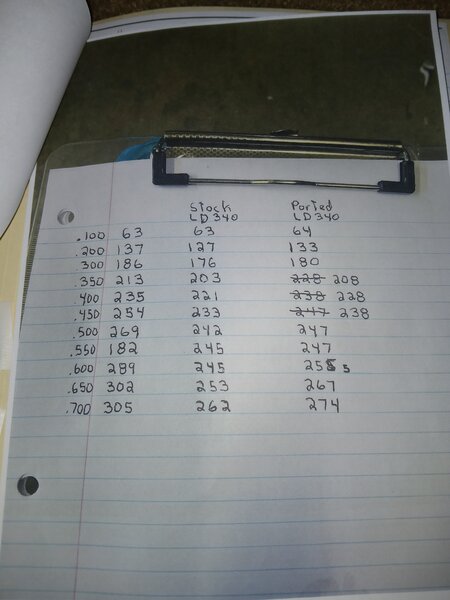 Stock Ported
LD340 LD340
.100 63 63 64
.200 137 127 133
.300 186 176 180
.350 213 203 228 208
.400 235 221 238 228
.450 254 233 247 238
.500 269 242 247
.550 182 245 247
.600 289 245 255 5
.650 302 253 267
.700 305 262 274